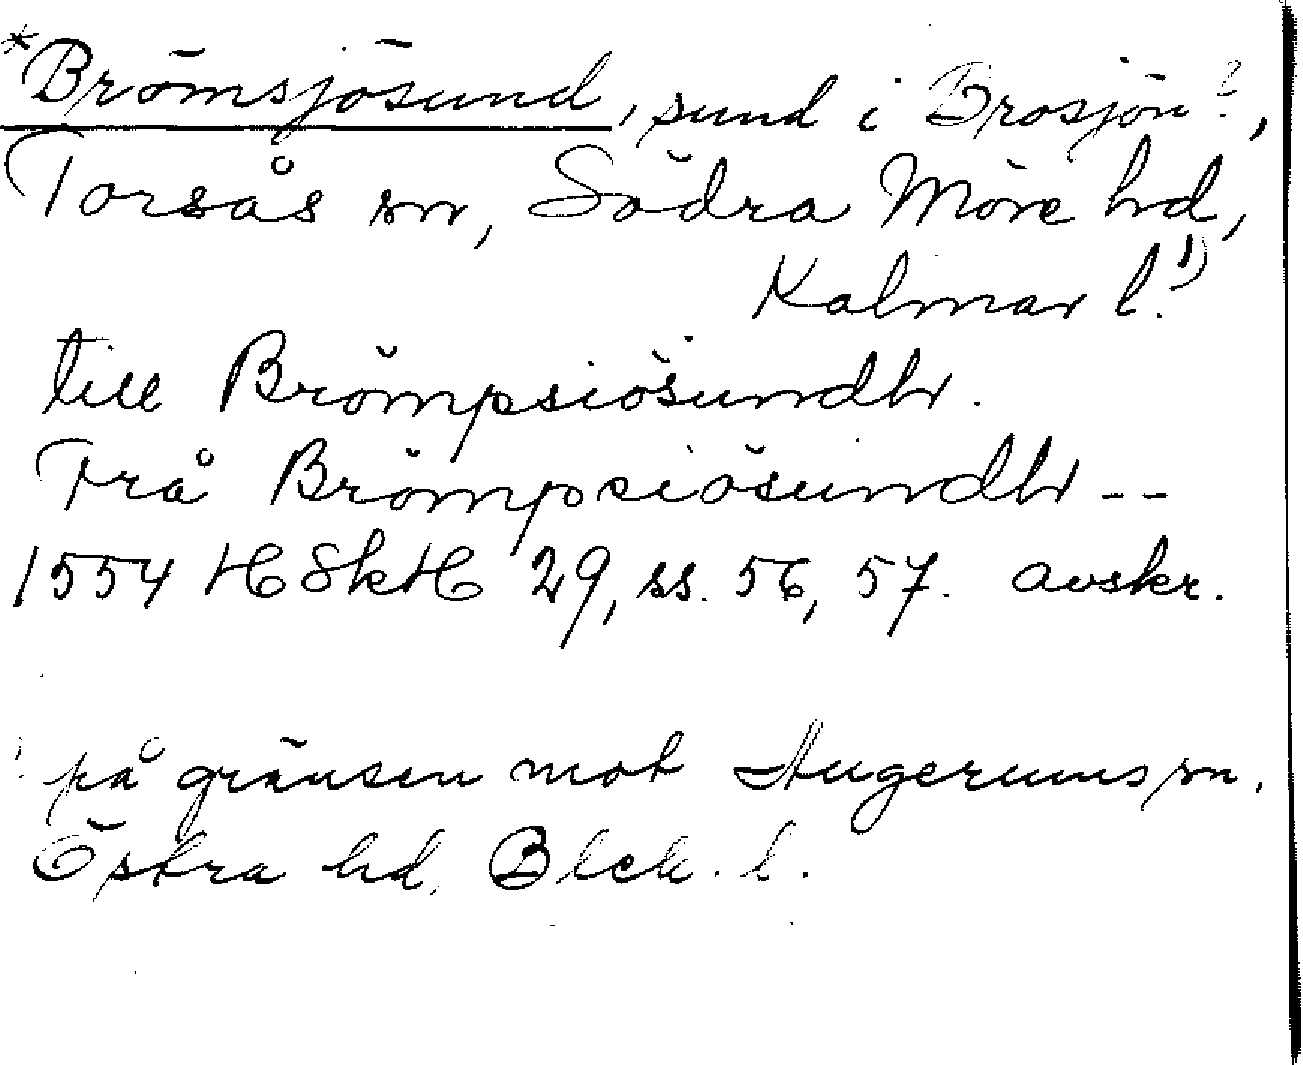 *Brömsjösund, sund i Brosjön?,
Torsås sn, Södra Möre hd,
Kalmar l.¹)
till Brömpsiösundh.
Frå Brömpsiösundh --
1554 HSkH 29, ss. 56, 57. avskr.
¹ på gränsen mot Augerums sn,
Östra hd, Blek. l.